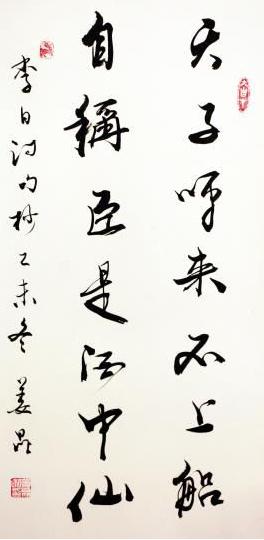 天子呼来不上船
自稱臣是酒中仙
李白诗句抄乙未冬 姜昆